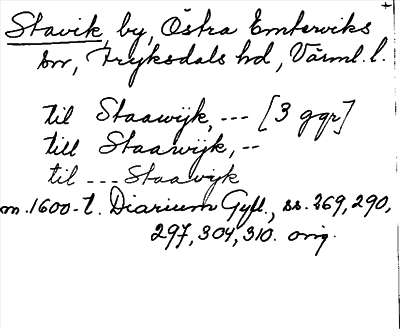 Stavik, by, Östra Emterviks
sn, Fryksdals hd, Värml. l.
til Staawijk, --- [3 ggr]
till Staawijk, --
til --- Staavijk
m. 1600-t. Diarium Gyll., ss. 269, 290,
297, 304, 310. orig.